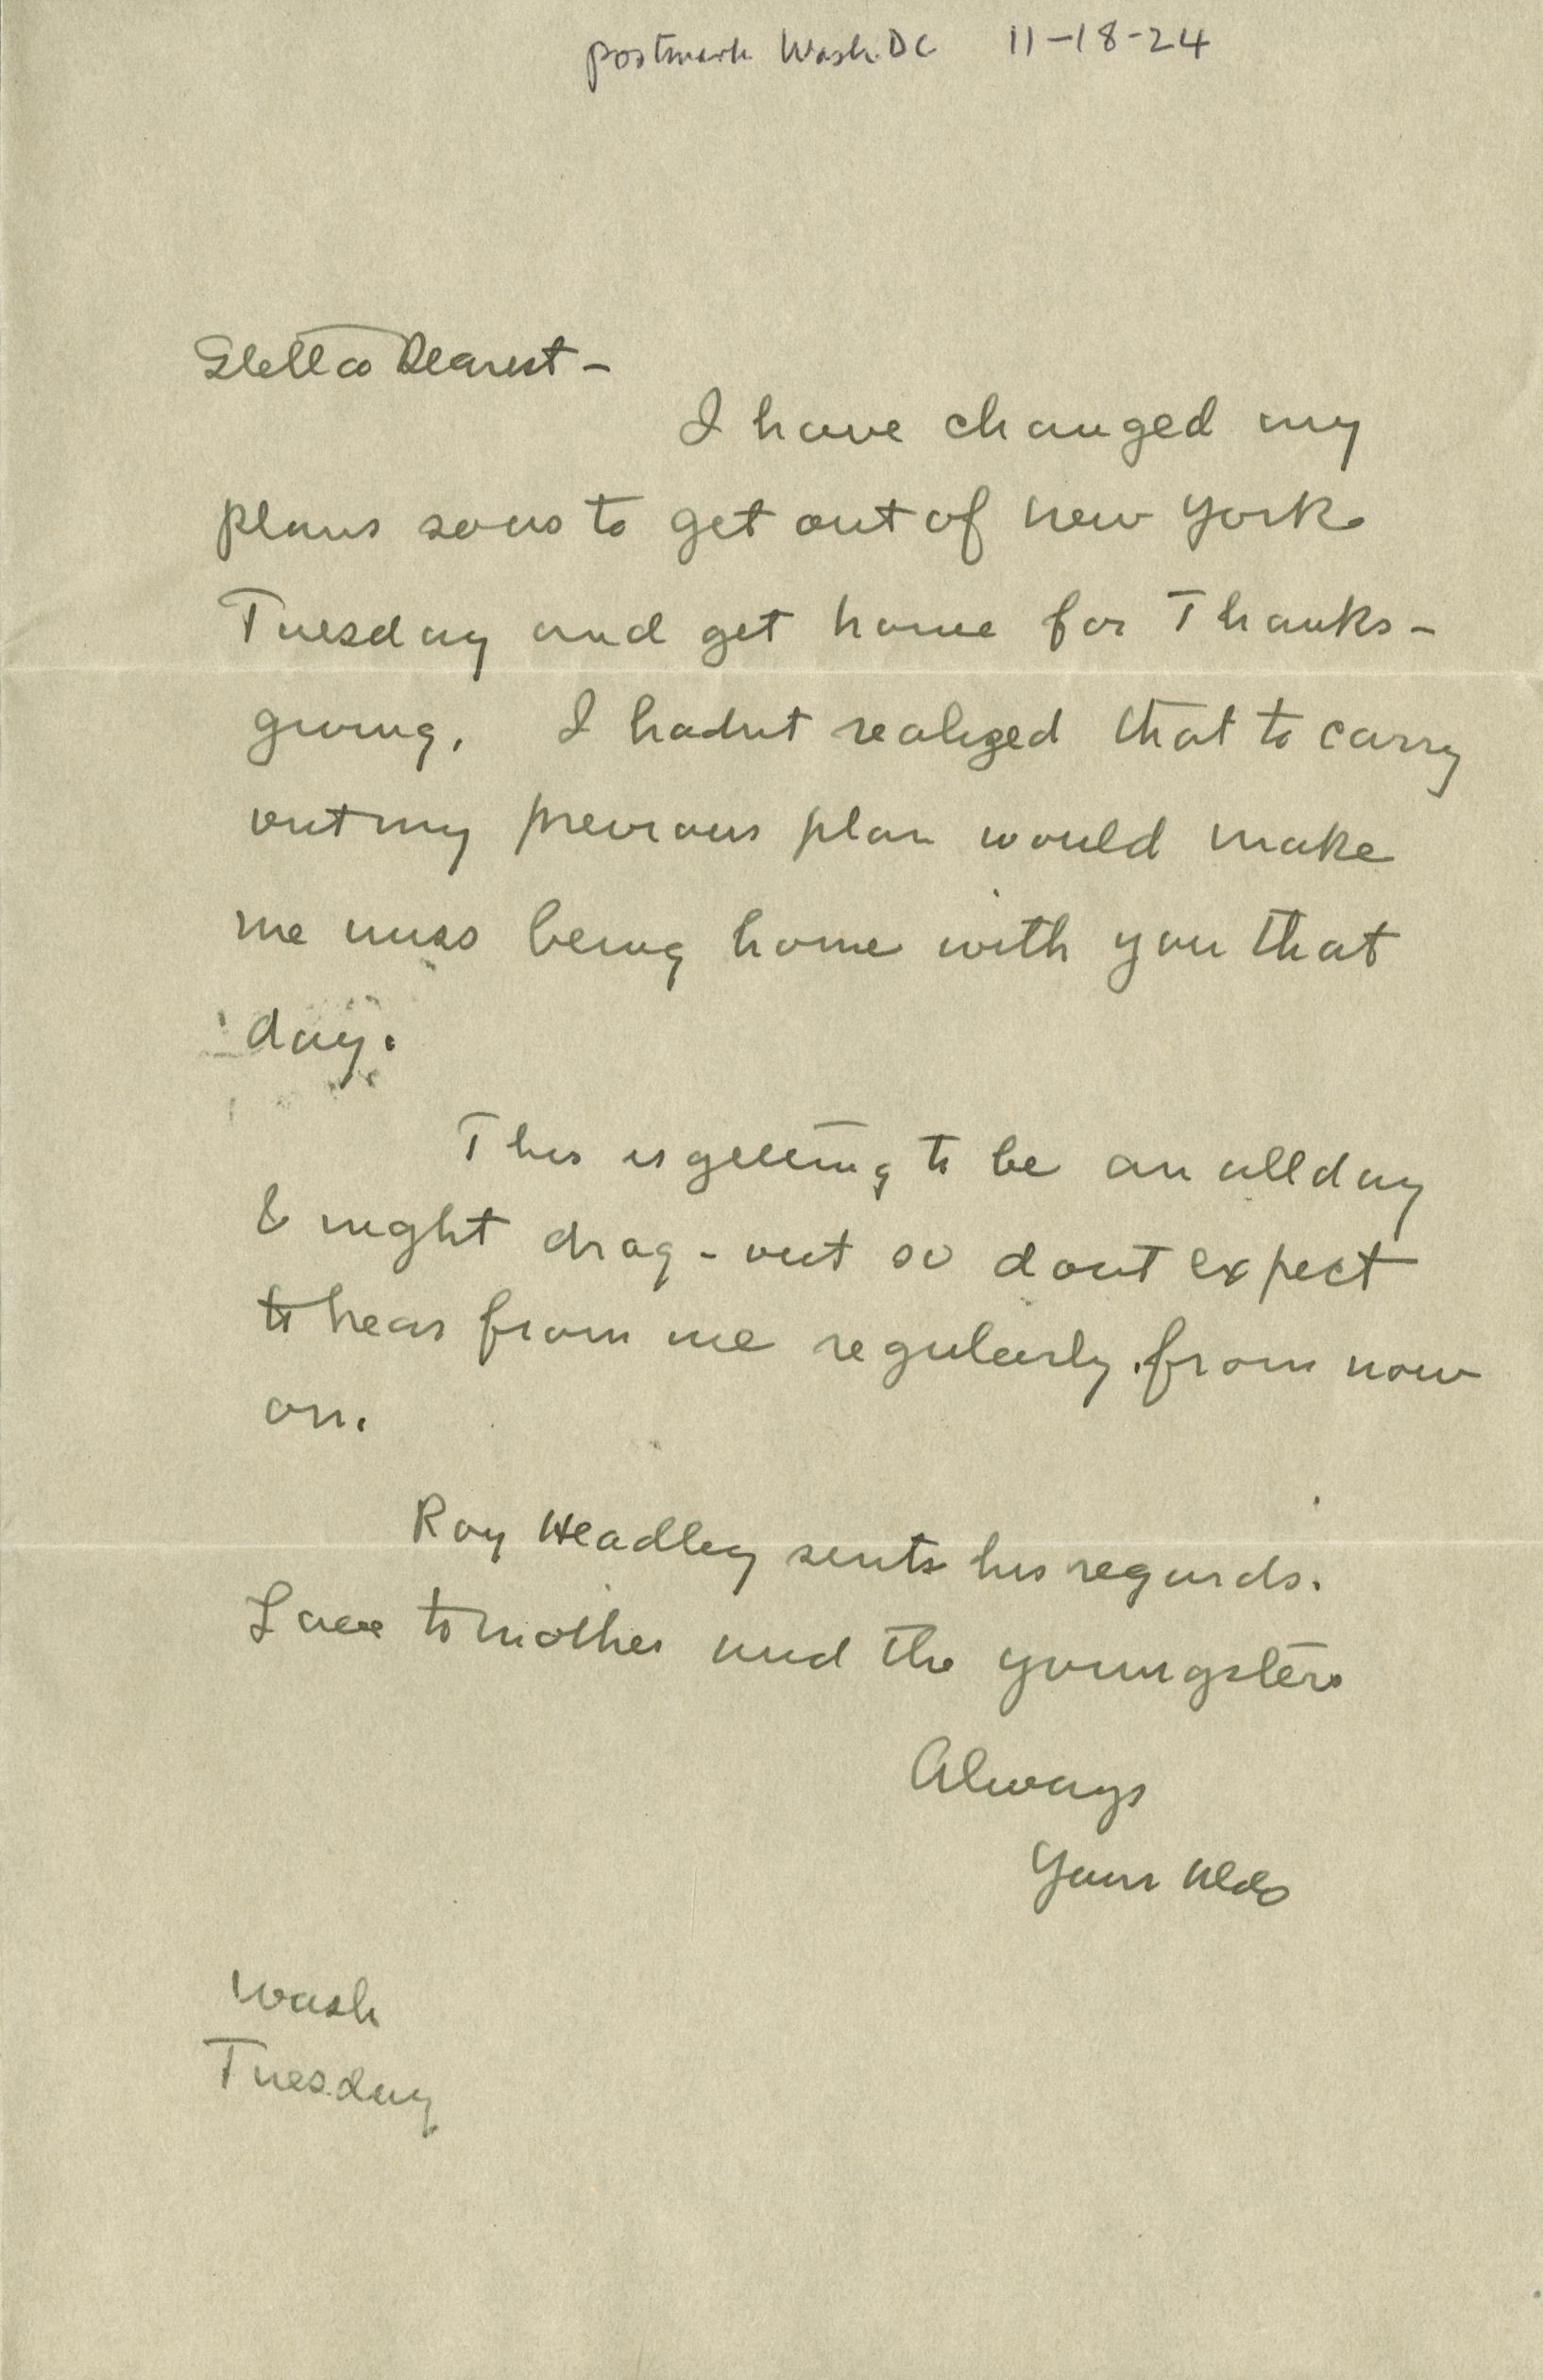 postmark Wash. DC 11-18-24
Estella Dearest -
I have changed my
plans so as to get out of New York
Tuesday and get home for Thanks-
giving. I hadnt realized that to carry
out my previous plan would make
me miss being home with you that
day.
This is getting to be an all day
& night drag-out so dont expect
to hear from me regularly from now
on.
Roy Headley sents his regards.
Love to Mother and the youngsters
Always
Your Aldo
Wash
Tuesday